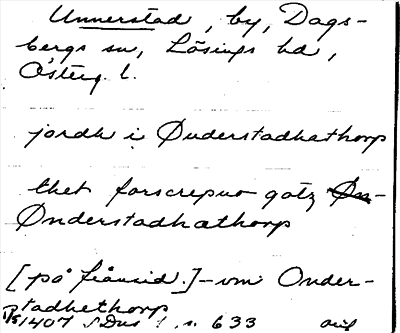 Unnerstad, by, Dags-
bergs sn, Lösings hd,
Österg. l.
jordh i Ønderstadhathorp
thet forscrepno gotz Øn-
Ønderstadhathorp
[på frånsid.] - vm Onder-
stadhethorp
1/5 1407 SDns 1, s. 633 avs